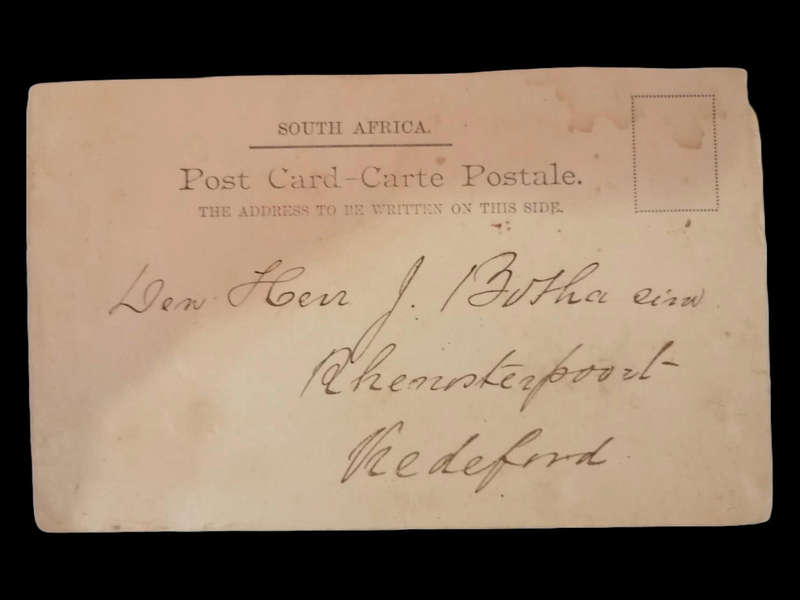 SOUTH AFRICA.
Post Card-Carte Postale.
THE ADDRESS TO BE WRITTEN ON THIS SIDE.
Den Herr J. Botha
Rhenosterpoort
Vredeford